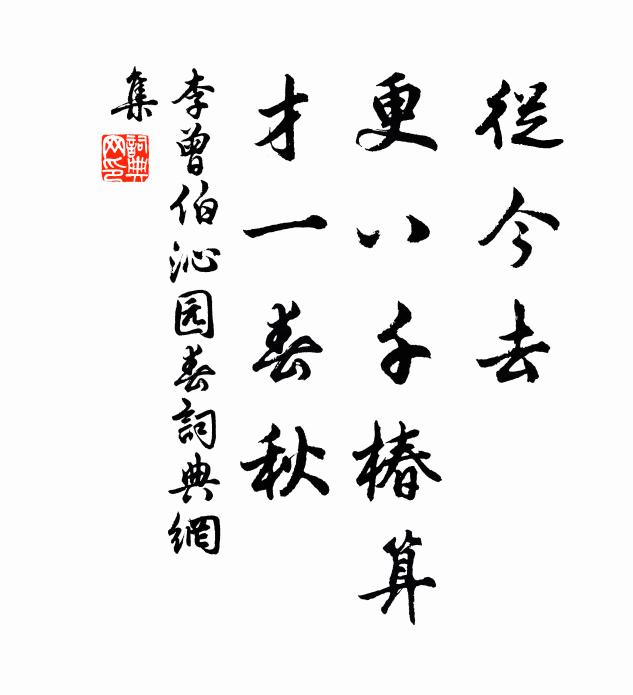 從今去
更八千椿算
才一春秋
李曾伯沁园春詞典網
集
詞典
网印